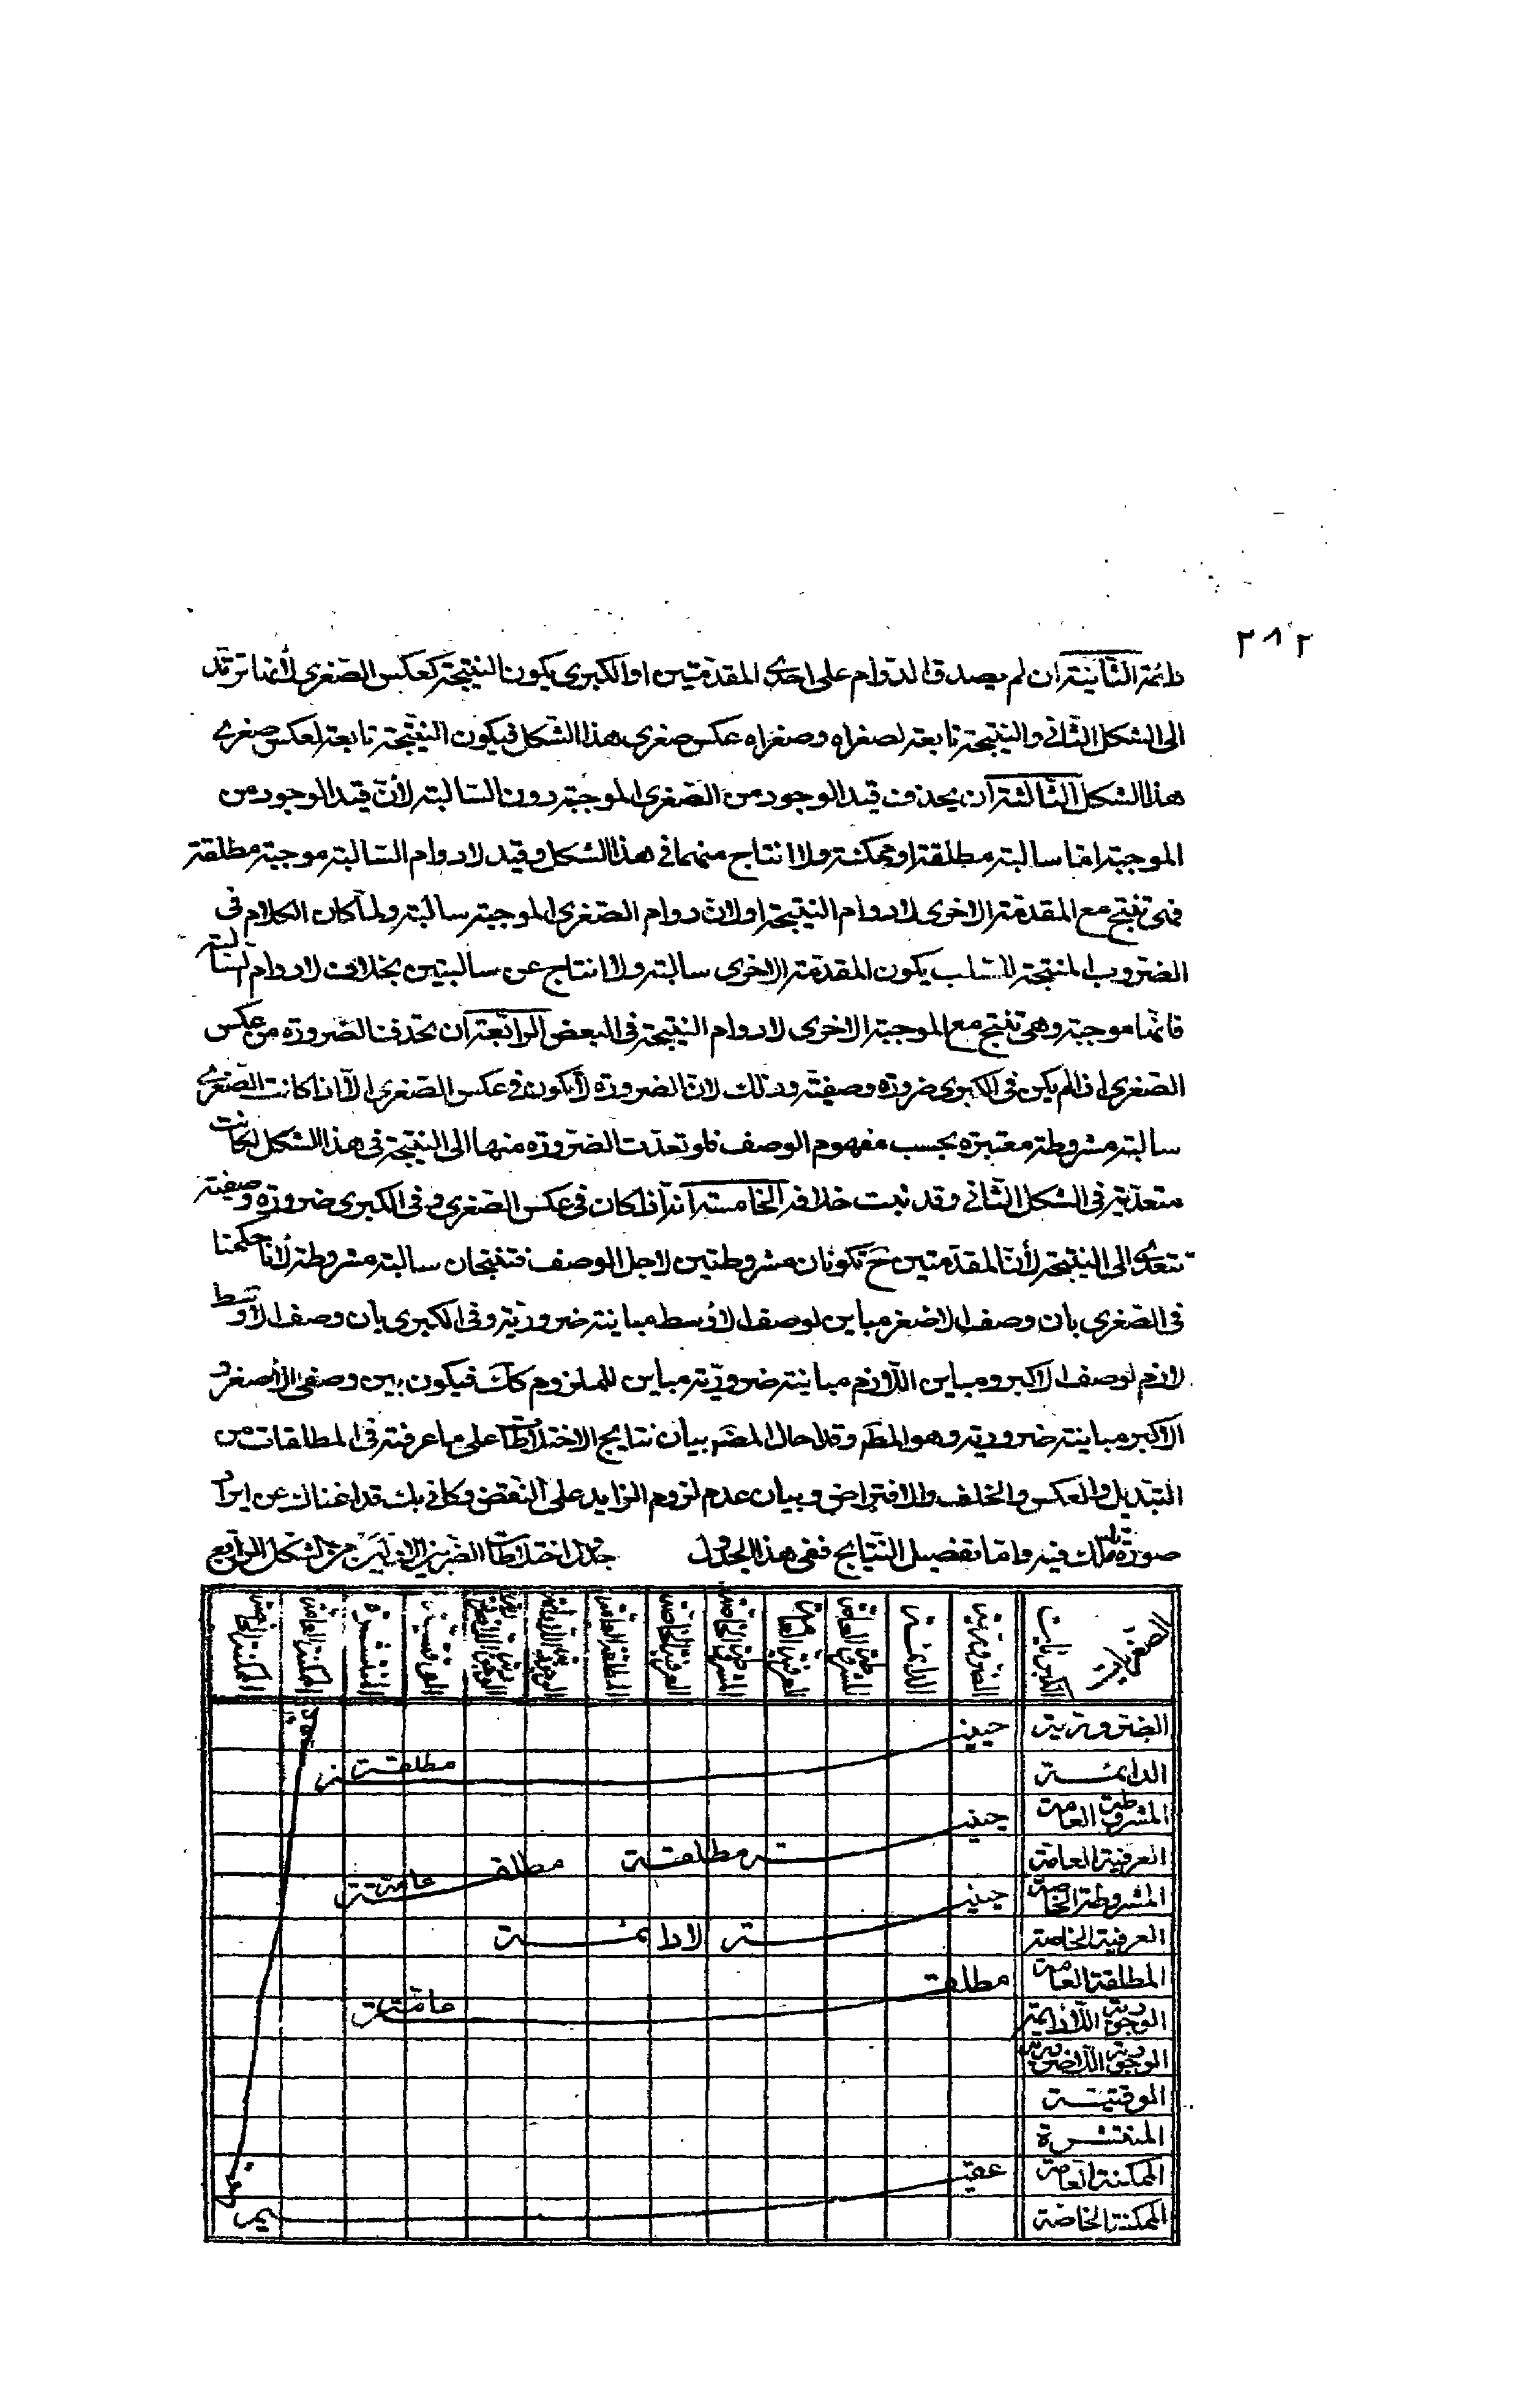 ٢٨٢
دائمة الثانية ان لم يصدق الدوام على احدى المقدمتين او الكبرى يكون النتيجة كعكس الصغرى لأنها ترتد
الى الشكل الثانى والنتيجة تابعة لصغراه وصغراه عكس صغرى هذا الشكل فيكون النتيجة تابعة لعكس صغرى
هذا الشكل الثالثة ان يحذف قيد الوجود من الصغرى الموجبة دون السالبة لأنّ قيد الوجود من
الموجبة امّا سالبة مطلقة او ممكنة ولا انتاج منهما فى هذا الشكل وقيد لادوام السالبة موجبة مطلقة
فهى تنتج مع المقدمة الاخرى لادوام النتيجة او لانّ دوام الصغرى الموجبة سالبة ولمّا كان الكلام فى
الضروب المنتجة للسّلب يكون المقدمة الاخرى سالبة ولا انتاج عن سالبتين بخلاف لادوام السّالبة
فانّها موجبة وهى تنتج مع الموجبة الاخرى لادوام النتيجة فى البعض الرابعة ان تحذف الضرورة من عكس
الصغرى اذ لم يكن فى الكبرى ضرورة وصفية وذلك لانّ الضرورة لا يكون فى عكس الصغرى الّا اذا كانت الصّغرى
سالبة مشروطة معتبرة بحسب مفهوم الوصف فلو تعدّت الضرورة منها الى النتيجة فى هذا الشكل لكانت
متعدّية فى الشكل الثانى وقد ثبت خلافه الخامسة انه اذا كان فى عكس الصغرى وفى الكبرى ضرورة وصفية
تتعدّى الى النتيجة لأنّ المقدّمتين ح تكونان مشروطتين لاجل الوصف فتنتجان سالبة مشروطة لأنا حكمنا
فى الصّغرى بان وصف الاصغر مباين لوصف الاوسط مباينة ضرورية وفى الكبرى بأن وصف الأوسط
لازم لوصف الاكبر ومباين اللّازم مباينة ضروريّة مباين للملزوم كك فيكون بين وصفى الأصغر و
الاكبر مباينة ضرورية وهو المطم وقد احال المصم بيان نتايج الاختلاطات على ما عرفته فى المطلقات من
التبديل والعكس والخلف والافتراض وبيان عدم لزوم الزايد على النّقض وكانّى بك قد اغناك عن ايراد
صورة فيه وامّا تفصيل النّتايج ففى هذا الجدول جدول اختلاطات الضربين الاوّلين من الشكل الرّابع
الصغريات الكبريات الضرورية الدائمة المشروطة العامة العرفية العامة المشروطة الخاصة العرفية الخاصة المطلقة العامة الوجودية اللادائمة الوجودية اللاضرورية الوقتية المنتشرة الممكنة العامة الممكنة الخاصة
الضرورية حينية
الدائمة مطلقة
المشروطة العامة حينية
العرفية العامة مطلقة مطلقة عامة
المشروطة الخاصة حينية
العرفية الخاصة لادائمة
المطلقة العامة مطلقة
الوجودية اللّادائمة عامّة
الوجودية اللّاضرورية
الوقتيـــة
المنتشـــرة
الممكنة العامة عقيـ
الممكنة الخاصّة ـم